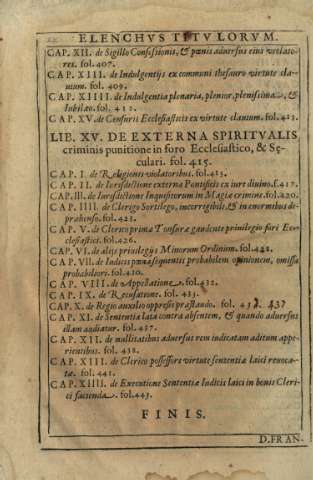 ELENCHVS TITVLORVM.
CAP. XII. de Sigillo Confessionis, & pœnis aduersus eius violato-
res. fol. 407.
CAP. XIII. de Indulgentijs ex communi thesauro virtute cla-
uium. fol. 409.
CAP. XIIII. de Indulgentia plenaria, plenior, plenissima, &
Iubilæo. fol. 412.
CAP. XV. de Censuris Ecclesiasticis ex virtute clauium. fol. 413.
LIB. XV. DE EXTERNA SPIRITVALIS
criminis punitione in foro Ecclesiastico, & Sę-
culari. fol. 415.
CAP. I. de Religionis violatoribus. fol. 415.
CAP. II. de Iurisdictione externa Pontificis ex iure diuino. f. 417.
CAP. III. de Iurisdictione Inquisitorum in Magiæ crimine. fol. 420.
CAP. IIII. de Clerigo Sortilego, incorregibili, & in enormibus di-
prahenso. fol. 423.
CAP. V. de Clerico primæ Tonsuræ gaudente priuilegio fori Eec-
clesiastici. fol. 426.
CAP. VI. de alijs priuilegijs Minorum Ordinum. fol. 442.
CAP. VII. de Iudicis pœna sequentis probabilem opinionem, omissa
probabiliori. fol. 410.
CAP. VIII. de Appellatione. fol. 432.
CAP. IX. de Recusatione. fol. 433.
CAP. X. de Regio auxilio oppresis præstando. fol. 437. 437
CAP. XI. de Sententia lata contra absentem, & quando aduersus
illam audiatur. fol. 437.
CAP. XII. de nullitatibus aduersus rem iudicatam aditum appe-
rientibus. fol. 438.
CAP. XIII. de Clerico possessore virtute sententiæ laici reuoca-
tæ. fol. 441.
CAP. XIIII. de Executione Sententiæ Iudicis laici in bonis Cleri-
ci facienda. fol. 443.
FINIS.
D. FRAN-